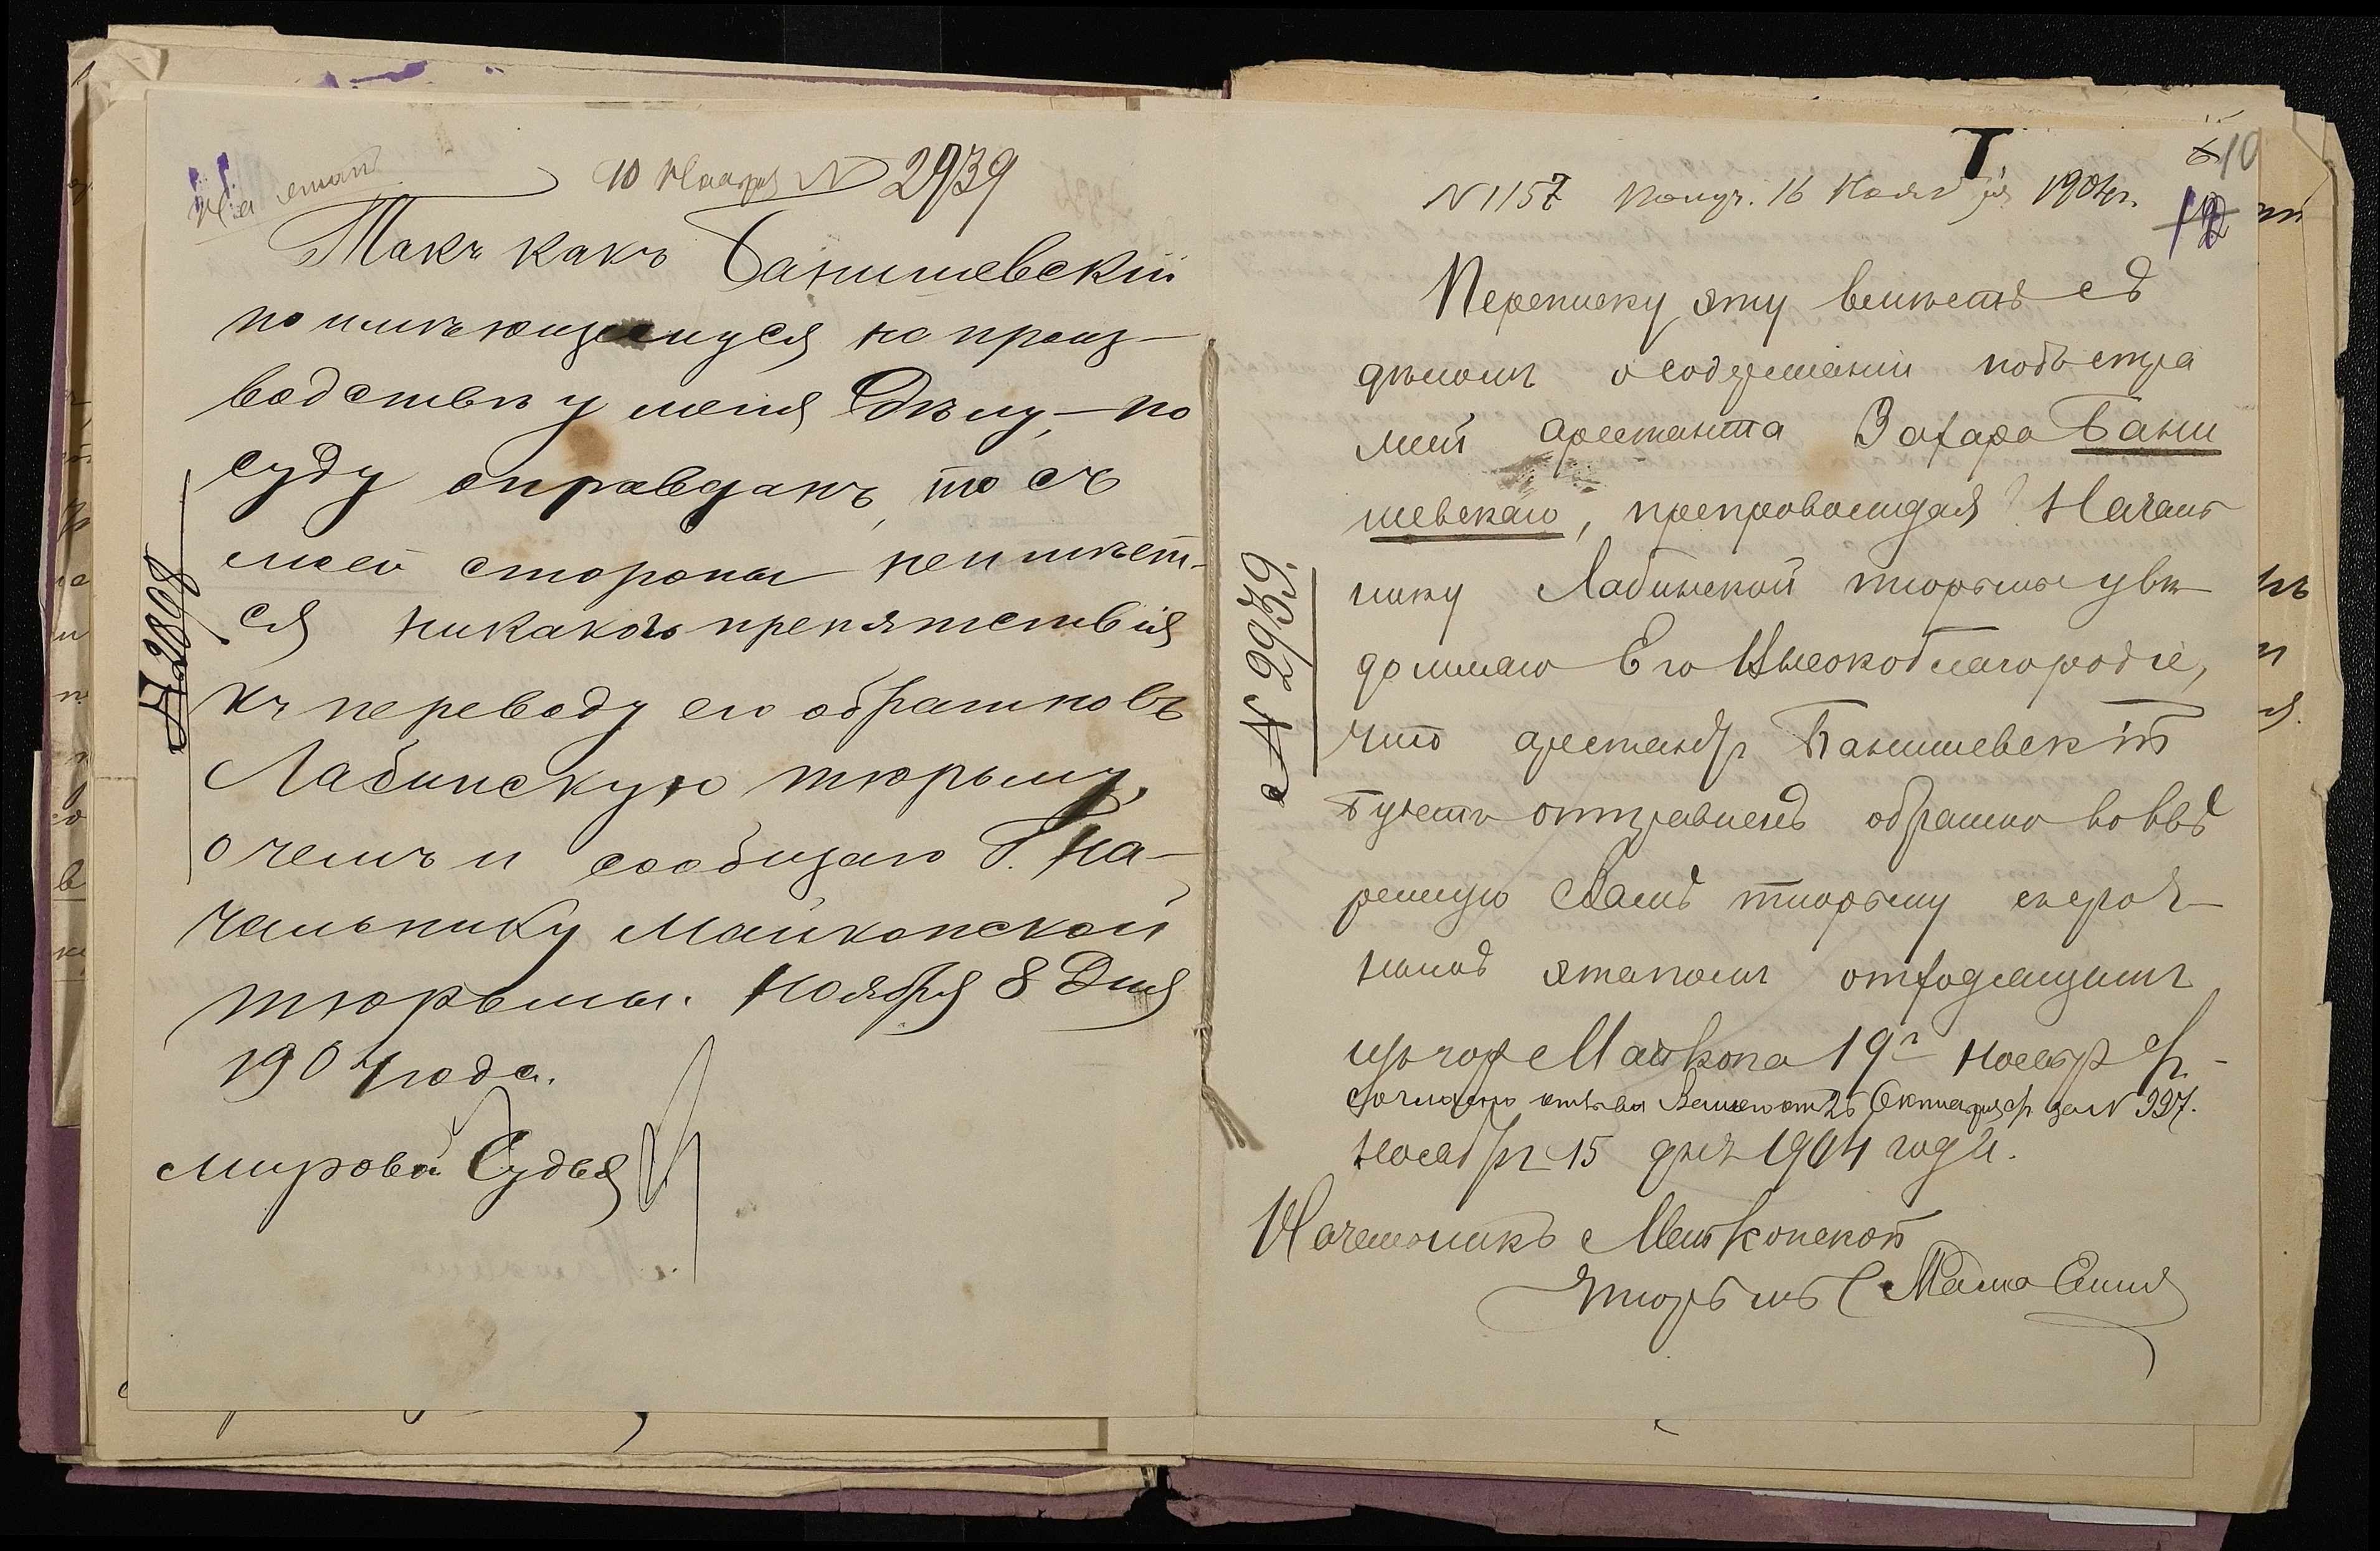 На этап
10 Ноября № 2939
Такъ какъ Банишевскій
по имѣющемуся на произ-
водствѣ у меня дѣлу, – по
суду оправданъ, то съ
моей стороны неимѣет-
ся никакого препятствія
къ переводу его обратно въ
Лабинскую тюрьму,
о чемъ и сообщаю Г. На-
чальнику Майкопской
тюрьмы. Ноября 8 дня
1904 года.
Мировой Судья
№ 2808
10
12
№ 1157 Получ. 16 Ноября 1904 г.
Переписку эту вмѣстѣ съ
дѣломъ о содержаніи подъ стра
жей арестанта Захара Бани
шевскаго, препровождая Началь
нику Лабинской тюрьмы увѣ
домляю Его Высокоблагородіе,
что арестантъ Банишевскій
будетъ отправленъ обратно во ввѣ
ренную Вамъ тюрьму
этапомъ отходящимъ
изъ гор Майкопа 19г Ноября
согласно отзыва Вашего от 26 Октября за № 997.
Ноября 15 дня 1904 года.
Начальникъ Майкопской
тюрьмы
№ 2939.